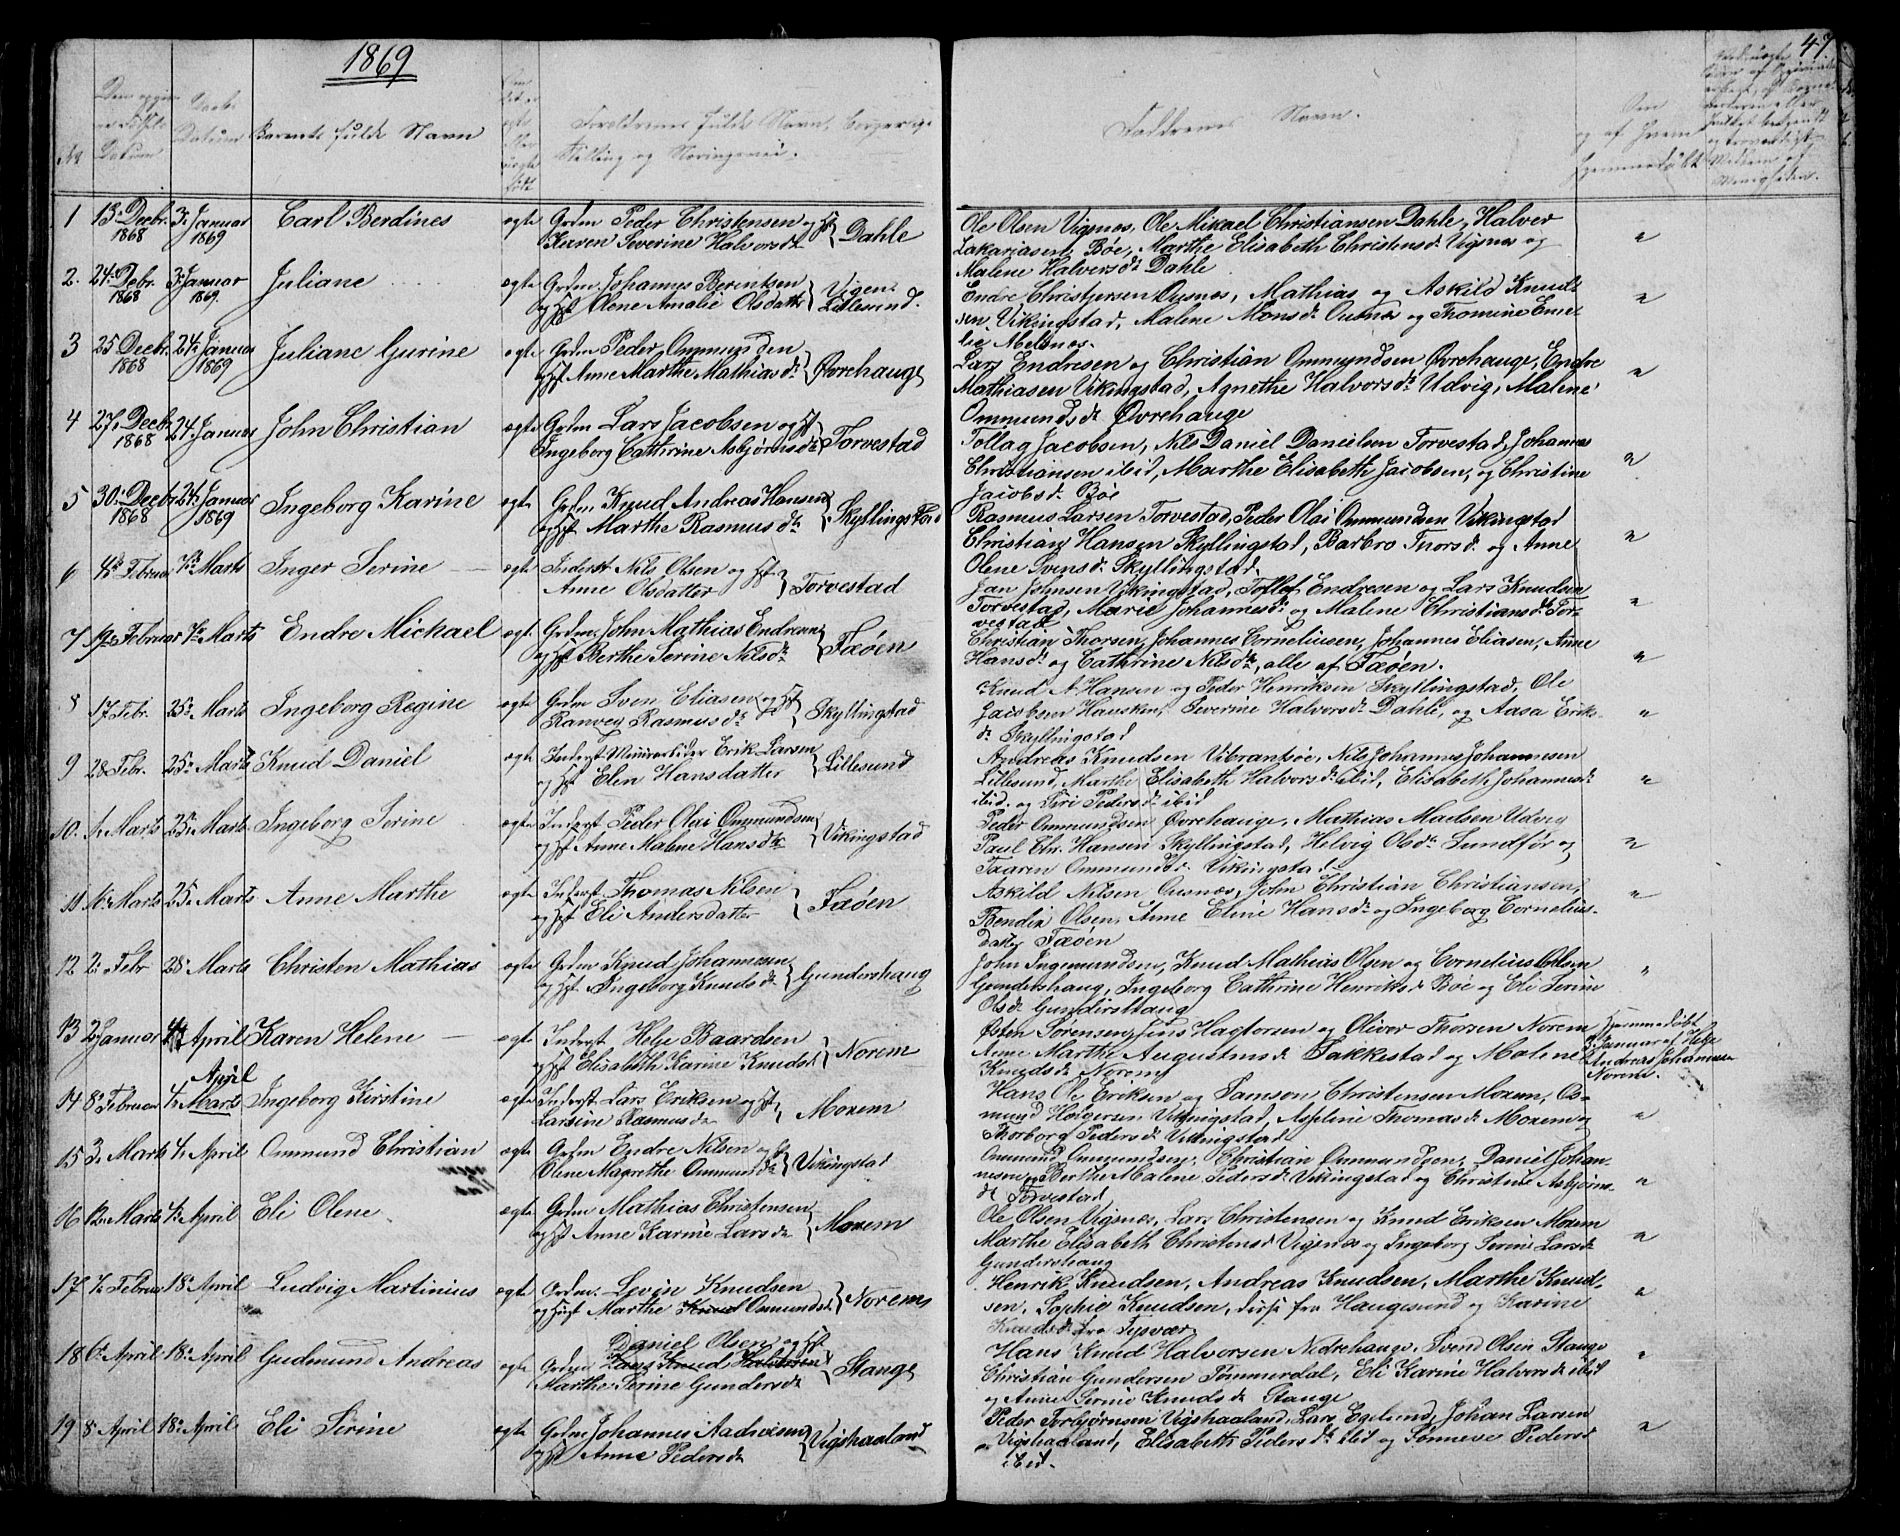 1869
47.
No
Datum
Daabs
Datum
Barnets fulde Navn
Forældrenes fulde Navn, borgerlige
Stilling og Næringsvei.
Faddrenes Navn.
Om
og af hvem
hjemmedøbt
1 13. Decbr. 3. Januar Carl Berdines ægte Grdm Peder Christensen og Hst } Dahle
1868 1869 Karen Severine Halvorsdr
Ole Olsen Vigsnes, Ole Mikael Christiansen Dahle, Halver
Zakariasen Bøe, Marthe Elisabeth Christensdr Vigsnes og
Malene Halversdr Dahle
2. 24. Debr. 3. Januar Juliane ægte Grdm. Johannes Berentsen
1868 1869. og Hst Olene Amalie Olsdatter } Lillesund.
Endre Christjersen Ousnes, Mathias og Askild Knud-
sen Vikingstad, Malene Monsdr Ousnes og Thomine Eme-
lie Melsnes.
3 25 Decbr. 24. Januar Juliane Gurine ægte Grdm Peder Ommundsen
1868 1869 og Hst Anne Marthe Mathiasdr } Øvrehauge
Lars Endresen og Christian Ommundsen Øvrehauge, Endre
Mathiasen Vikingstad, Agnethe Halvorsdr Udvig, Malene
Ommundsdr Øvrehauge
4 27. Decbr. 24. Januar John Christian ægte Grdm Lars Jacobsen og Hst
1868 Ingeborg Cathrine Asbjørnsdr } Torvestad
Tollag Jacobsen, Nils Daniel Danielsen Torvestad, Johannes
Christiansen ibid, Marthe Elisabeth Jacobsen, og Christine
Jacobsdr Bøe
5 30. Decbr 24. Januar Ingeborg Karine ægte Grdm Knud Andreas Hansen
1868 1869 og Hst Marthe Rasmusdr } Skyllingstad
Rasmus Larsen Torvestad, Peder Olai Ommundsen Vikingstad
Christian Hansen Skyllingstad, Barbro Thorsdr og Anne
Olene Svensdr Skyllingstad.
6 4. Februar 7. Marts Inger Serine ægte Inderst Nils Olsen og Hst
Anne Olsdatter } Torvestad
Jan Johnsen Vikingstad, Tollef Endresen og Lars Knudsen
Torvestad, Marie Johannesdr og Malene Christiansdr Tor-
vestad
7 Februar 7. Marts Endre Mickael ægte Grdm. John Mathias Endresen
og Hst Berthe Serine Nilsdr } Fæøen
Christian Thorsen, Johannes Corneliusen, Johannes Eliasen, Anne
Hansdr og Cathrine Nilsdr, alle af Fæøen.
8 17 Febr. 25. Marts Ingeborg Regine ægte Grdm Sven Eliasen og Hst
Ranvey Rasmusdr } Skyllingstad
Knud A. Hansen og Peder Henriksen Skyllingstad, Ole
Jacobsen Hausken, Severine Halvorsdr Dahle, og Aasa Eriks-
dr Skyllingstad
9 28 Febr. 25. Marts Knud Daniel ægte Inderst Erik Larsen
og Hst Elen Hansdatter } Lillesund
Andreas Knudsen Vibrandsøe, Nils Johannes Johannesen
Lillesund, Marthe Elisabeth Halvorsdr ibid, Elisabeth Johannesdr
ibid. og Siri Pedersdr ibid
10. 1. Marts 25. Marts Ingeborg Serine ægte Inderst Peder Olai Ommundsen
og Hst Anne Malene Hansdtr } Vikingstad
Peder Ommundsen Øvrehauge, Mathias Madsen Udvig
Paul Chr. Hansen Skyllingstad, Helvig Olsdr Sundfør og
Taaren Ommundsdr Vikingstad
11 Marts 25. Marts Anne Marthe ægte Inderst Thomas Nilsen
og Hst Eli Andersdatter } Fæøen
Askild Nilsen Ousnes, John Christian Christiansen,
Bendix Olsen, Anne Eline Hansdr og Ingeborg Cornelius-
datter Fæøen
12 2. Febr 28 Marts Christen Mathias ægte Grdm Knud Johannesen
og Hst Ingeborg Knudsdr } Gundershaug
John Ingemundsen, Knud Mathias Olsen og Cornelius Olsen
Gundershaug, Ingeborg Cathrine Henriksdr Bøe og Eli Serine
Olsdr Gundershaug
13 2 Januar 4 April Karen Helene ægte Inderst Helge Baardsen
og Hst Elisabeth Karine Knudsdr } Norem
Østen Sørensen, Jens Hagtorsen og Oliver Thorsen Norem
Anne Marthe Augustinusdr Sakkestad og Malene
Knudsdr Norem
Hjemmedøbt
Januar af Helje
Andreas Johannesen
Norem.
April
14 8. Februar 4. Marts Ingeborg Kirstine ægte Inderst Lars Eriksen og Hst
Larsine Rasmusdr } Moxem
Hans Ole Eriksen og Samson Christensen Moxem, Os-
mund Holgersen Vikingstad, Aseline Thomasdr Moxem og
Thorborg Pedersdr Vikingstad
15 3. Marts 4. April Ommund Christian ægte Grdm Endre Nilsen og Hst
Olene Magrethe Ommundsdr } Vikingstad
Ommund Ommundsen, Christian Ommundsen, Daniel Johan-
nesen og Berthe Malene Pedersdr Vikingstad og Christine Asbjørns-
dr Torvestad
16 12. Marts 4. April Eli Olene ægte Grdm Mathias Christensen
og Hst Anne Karine Larsdr } Moxem
Ole Olsen Vigsnes, Lars Christensen og Knud Eriksen Moxem
Marthe Elisabeth Christensdr Vigsnes og Ingeborg Serine Larsdr
Gundershaug
17 7. Februar 18. April Ludvig Martinius ægte Grdm. Levin Knudsen
og Hst Marthe Knud Ommundsdr } Norem
Henrik Knudsen, Andreas Knudsen, Marthe Knud-
sen, Sophie Knudsen, disse fra Haugesund og Karine
Knudsdr fra Tysvær
Daniel Olsen og Hst
18 6. April 18. April Gudmund Andreas ægte Grdm Hans Knud Halvorsen
Marthe Serine Gundersdr } Stange
Hans Knud Halvorsen Nedrehauge, Svend Olsen Stange
Christian Gundersen Tømmerdal, Eli Karine Halvorsdr ibid
og Anne Serine Knudsdr Stange
19 8. April 18. April Eli Serine ægte Grdm Johannes
og Hst Anne Pedersdr } Vigshaaland
Peder Torbjørnsen Vigshaaland, Lars Egelund, Johan Larsen
Vigshaaland, Elisabeth Pedersdr ibid og Sønneve Pedersdr
ibid.